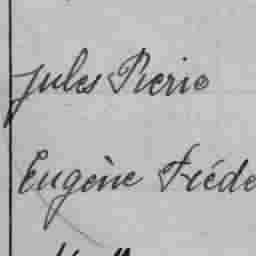 Jules Pierre
Eugène Fréde